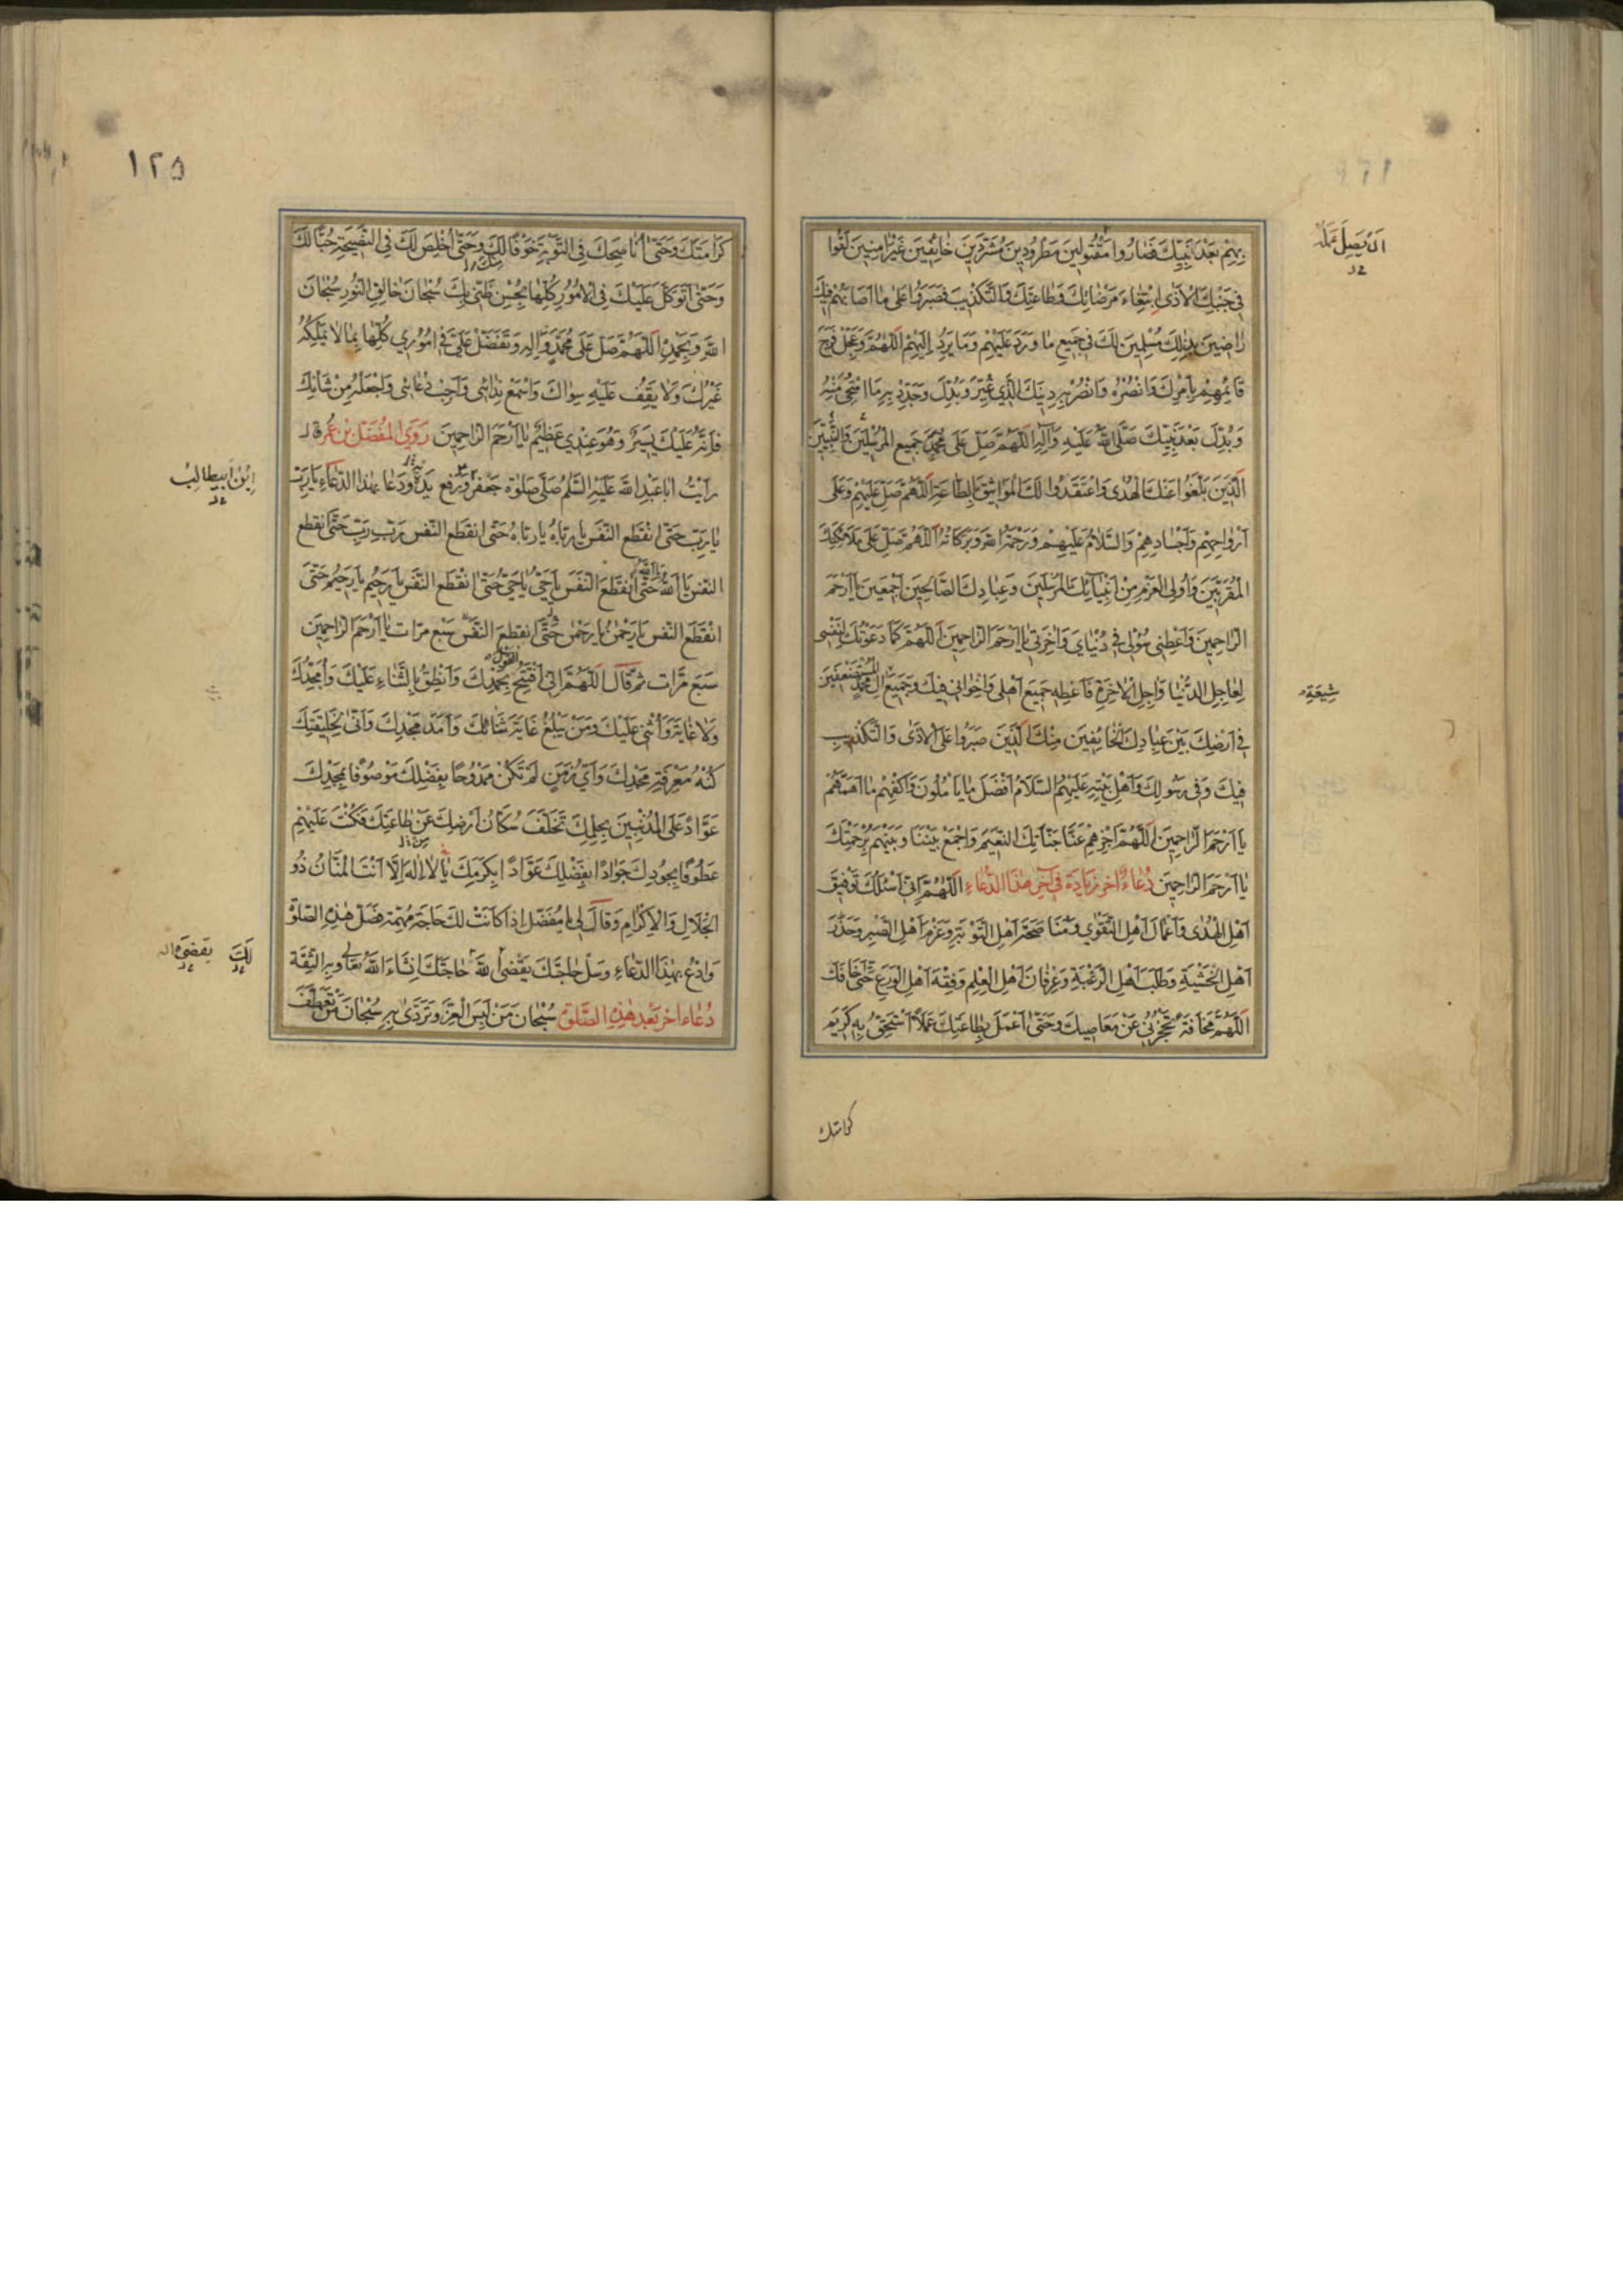 بِهِمْ بَعْدَ نَبِيِّكَ فَصَارُوا مَقْتُولِينَ مَطْرُودِينَ مُشَرَّدِينَ خَائِفِينَ غَيْرَ آمِنِينَ لَقُوا
فِي جَنْبِكَ الْأَذَى ابْتِغَاءَ مَرْضَاتِكَ وَطَاعَتِكَ وَالتَّكْذِيبَ فَصَبَرُوا عَلَى مَا أَصَابَهُمْ فِيكَ
رَاضِينَ بِذَلِكَ مُسَلِّمِينَ لَكَ فِي جَمِيعِ مَا وَرَدَ عَلَيْهِمْ وَمَا يَرِدُ إِلَيْهِمْ اللَّهُمَّ وَعَجِّلْ فَرَجَ
قَائِمِهِمْ بِأَمْرِكَ وَانْصُرْهُ وَانْصُرْ بِهِ دِينَكَ الَّذِي غُيِّرَ وَبُدِّلَ وَجَدِّدْ بِهِ مَا امْتَحَى مِنْهُ
وَبُدِّلَ بَعْدَ نَبِيِّكَ صَلَّى اللَّهُ عَلَيْهِ وَآلِهِ اللَّهُمَّ صَلِّ عَلَى مُحَمَّدٍ جَمِيعِ الْمُرْسَلِينَ وَالنَّبِيِّينَ
الَّذِينَ بَلَّغُوا عَنْكَ الْهُدَى وَاعْتَقَدُوا لَكَ الْمَوَاثِيقَ بِالطَّاعَةِ اللَّهُمَّ صَلِّ عَلَيْهِمْ وَعَلَى
أَرْوَاحِهِمْ وَأَجْسَادِهِمْ وَالسَّلَامُ عَلَيْهِمْ وَرَحْمَةُ اللَّهِ وَبَرَكَاتُهُ اللَّهُمَّ صَلِّ عَلَى مَلَائِكَتِكَ
الْمُقَرَّبِينَ وَأُولِي الْعَزْمِ مِنْ أَنْبِيَائِكَ الْمُرْسَلِينَ وَعِبَادِكَ الصَّالِحِينَ أَجْمَعِينَ يَا أَرْحَمَ
الرَّاحِمِينَ وَأَعْطِنِي سُؤْلِي فِي دُنْيَايَ وَآخِرَتِي يَا أَرْحَمَ الرَّاحِمِينَ اللَّهُمَّ كَمَا دَعَوْتُكَ لِنَفْسِي
لِعَاجِلِ الدُّنْيَا وَآجِلِ الْآخِرَةِ فَأَعْطِهِ جَمِيعَ أَهْلِي وَإِخْوَانِي فِيكَ وَجَمِيعَ آلِ مُحَمَّدٍ الْمُسْتَضْعَفِينَ
فِي أَرْضِكَ بَيْنَ عِبَادِكَ الْخَائِفِينَ مِنْكَ الَّذِينَ صَبَرُوا عَلَى الْأَذَى وَالتَّكْذِيبِ
فِيكَ وَفِي رَسُولِكَ وَأَهْلِ بَيْتِهِ عَلَيْهِمُ السَّلَامُ أَفْضَلَ مَا يَأْمُلُونَ وَاكْفِهِمْ مَا أَهَمَّهُمْ
يَا أَرْحَمَ الرَّاحِمِينَ اللَّهُمَّ اجْزِهِمْ عَنَّا جَنَّاتِكَ النَّعِيمِ وَاجْمَعْ بَيْنَنَا وَبَيْنَهُمْ بِرَحْمَتِكَ
يَا أَرْحَمَ الرَّاحِمِينَ دُعَاءٌ آخَرُ زِيَادَة فِي آخِرِ هَذَا الدُّعَاءِ اللَّهُمَّ إِنِّي أَسْأَلُكَ تَوْفِيقَ
أَهْلِ الْهُدَى وَأَعْمَالَ أَهْلِ التَّقْوَى وَمُنَاصَحَةَ أَهْلِ التَّوْبَةِ وَعَزْمَ أَهْلِ الصَّبْرِ وَحَذَرَ
أَهْلِ الْخَشْيَةِ وَطَلَبَ أَهْلِ الرَّغْبَةِ وَعِرْفَانَ أَهْلِ الْعِلْمِ وَفِقْهَ أَهْلِ الْوَرَعِ حَتَّى أَخَافَكَ
اللَّهُمَّ مَخَافَةً تَحْجُزُنِي عَنْ مَعَاصِيكَ وَحَتَّى أَعْمَلَ بِطَاعَتِكَ عَمَلًا أَسْتَحِقُّ بِهِ كَرِيمَ
شِيعَةِ
كرامتك
١٢٥
كَرَامَتِكَ وَحَتَّى أُنَاصِحَكَ فِي التَّوْبَةِ خَوْفًا لَكَ وَحَتَّى أُخْلِصَ لَكَ فِي النَّصِيحَةِ حُبًّا لَكَ
وَحَتَّى أَتَوَكَّلَ عَلَيْكَ فِي الْأُمُورِ كُلِّهَا بِحُسْنِ ظَنِّي بِكَ سُبْحَانَ خَالِقِ النُّورِ سُبْحَانَ
اللَّهِ وَبِحَمْدِهِ اللَّهُمَّ صَلِّ عَلَى مُحَمَّدٍ وَآلِهِ وَتَفَضَّلْ عَلَيَّ فِي أُمُورِي كُلِّهَا بِمَا لَا يَمْلِكُهُ
غَيْرُكَ وَلَا يَقِفُ عَلَيْهِ سِوَاكَ وَاسْمَعْ نِدَائِي وَأَجِبْ دُعَائِي وَاجْعَلْهُ مِنْ شَأْنِكَ
فَإِنَّهُ عَلَيْكَ يَسِيرٌ وَهُوَ عِنْدِي عَظِيمٌ يَا أَرْحَمَ الرَّاحِمِينَ رَوَى الْمُفَضَّلُ بْنُ عُمَرَ قال
رَأَيْتُ أَبَا عَبْدِ اللَّهِ عَلَيْهِ السَّلَمُ صَلَّى صَلَوةَ جَعْفَرٍ وَرَفَعَ يَدَيْهِ وَدَعَا بِهَذَا الدُّعَاءِ يَا رَبِّ
يَا رَبِّ حَتَّى انْقَطَعَ النَّفَسُ يَا رَبَّاهُ يَا رَبَّاهُ حَتَّى انْقَطَعَ النَّفَسُ رَبِّ رَبِّ حَتَّى انْقَطَعَ
النَّفَسُ يَا اللَّهُ يَا اللَّهُ حَتَّى انْقَطَعَ النَّفَسُ يَا حَيُّ يَا حَيُّ حَتَّى انْقَطَعَ النَّفَسُ يَا رَحِيمُ يَا رَحِيمُ حَتَّى
انْقَطَعَ النَّفَسُ يَا رَحْمَنُ يَا رَحْمَنُ حَتَّى انْقَطَعَ النَّفَسُ سَبْعَ مَرَّاتٍ يَا أَرْحَمَ الرَّاحِمِينَ
سَبْعَ مَرَّاتٍ ثُمَّ قَالَ اللَّهُمَّ إِنِّي أَفْتَتِحُ الْقَوْلَ بِحَمْدِكَ وَأَنْطِقُ بِالثَّنَاءِ عَلَيْكَ وَأُمَجِّدُكَ
وَلَا غَايَةَ وَأُثْنِي عَلَيْكَ وَمَنْ يَبْلُغُ غَايَةَ ثَنَائِكَ وَأَمَدَ مَجْدِكَ وَأَنَّى لِخَلِيقَتِكَ
كُنْهُ مَعْرِفَةِ مَجْدِكَ وَأَيُّ زَمَنٍ لَمْ تَكُنْ مَمْدُوحًا بِفَضْلِكَ مَوْصُوفًا بِمَجْدِكَ
عَوَّادًا عَلَى الْمُذْنِبِينَ بِحِلْمِكَ تَخَلَّفَ سُكَّانُ أَرْضِكَ عَنْ طَاعَتِكَ فَكُنْتَ عَلَيْهِمْ
عَطُوفًا بِجُودِكَ جَوَادًا بِفَضْلِكَ عَوَّادًا بِكَرَمِكَ يَا لَا إِلَهَ إِلَّا أَنْتَ الْمَنَّانُ ذُو
الْجَلَالِ وَالْإِكْرَامِ وَقَالَ لِي يَا مُفَضَّلُ إِذَا كَانَتْ لَكَ حَاجَةٌ مُهِمَّةٌ فَصَلِّ هَذِهِ الصَّلَوةَ
وَادْعُ بِهَذَا الدُّعَاءِ وَسَلْ حَاجَتَكَ يَقْضِي اللَّهُ حَاجَتَكَ إِنْ شَاءَ اللَّهُ تَعَالَى وَبِهِ الثِّقَةُ
دُعَاء آخر بَعْدَ هَذِهِ الصَّلَوة سُبْحَانَ مَنْ لَبِسَ الْعِزَّ وَتَرَدَّى بِهِ سُبْحَانَ مَنْ تَعَطَّفَ
ابْن أَبِيطَالِبْ
لَكَ